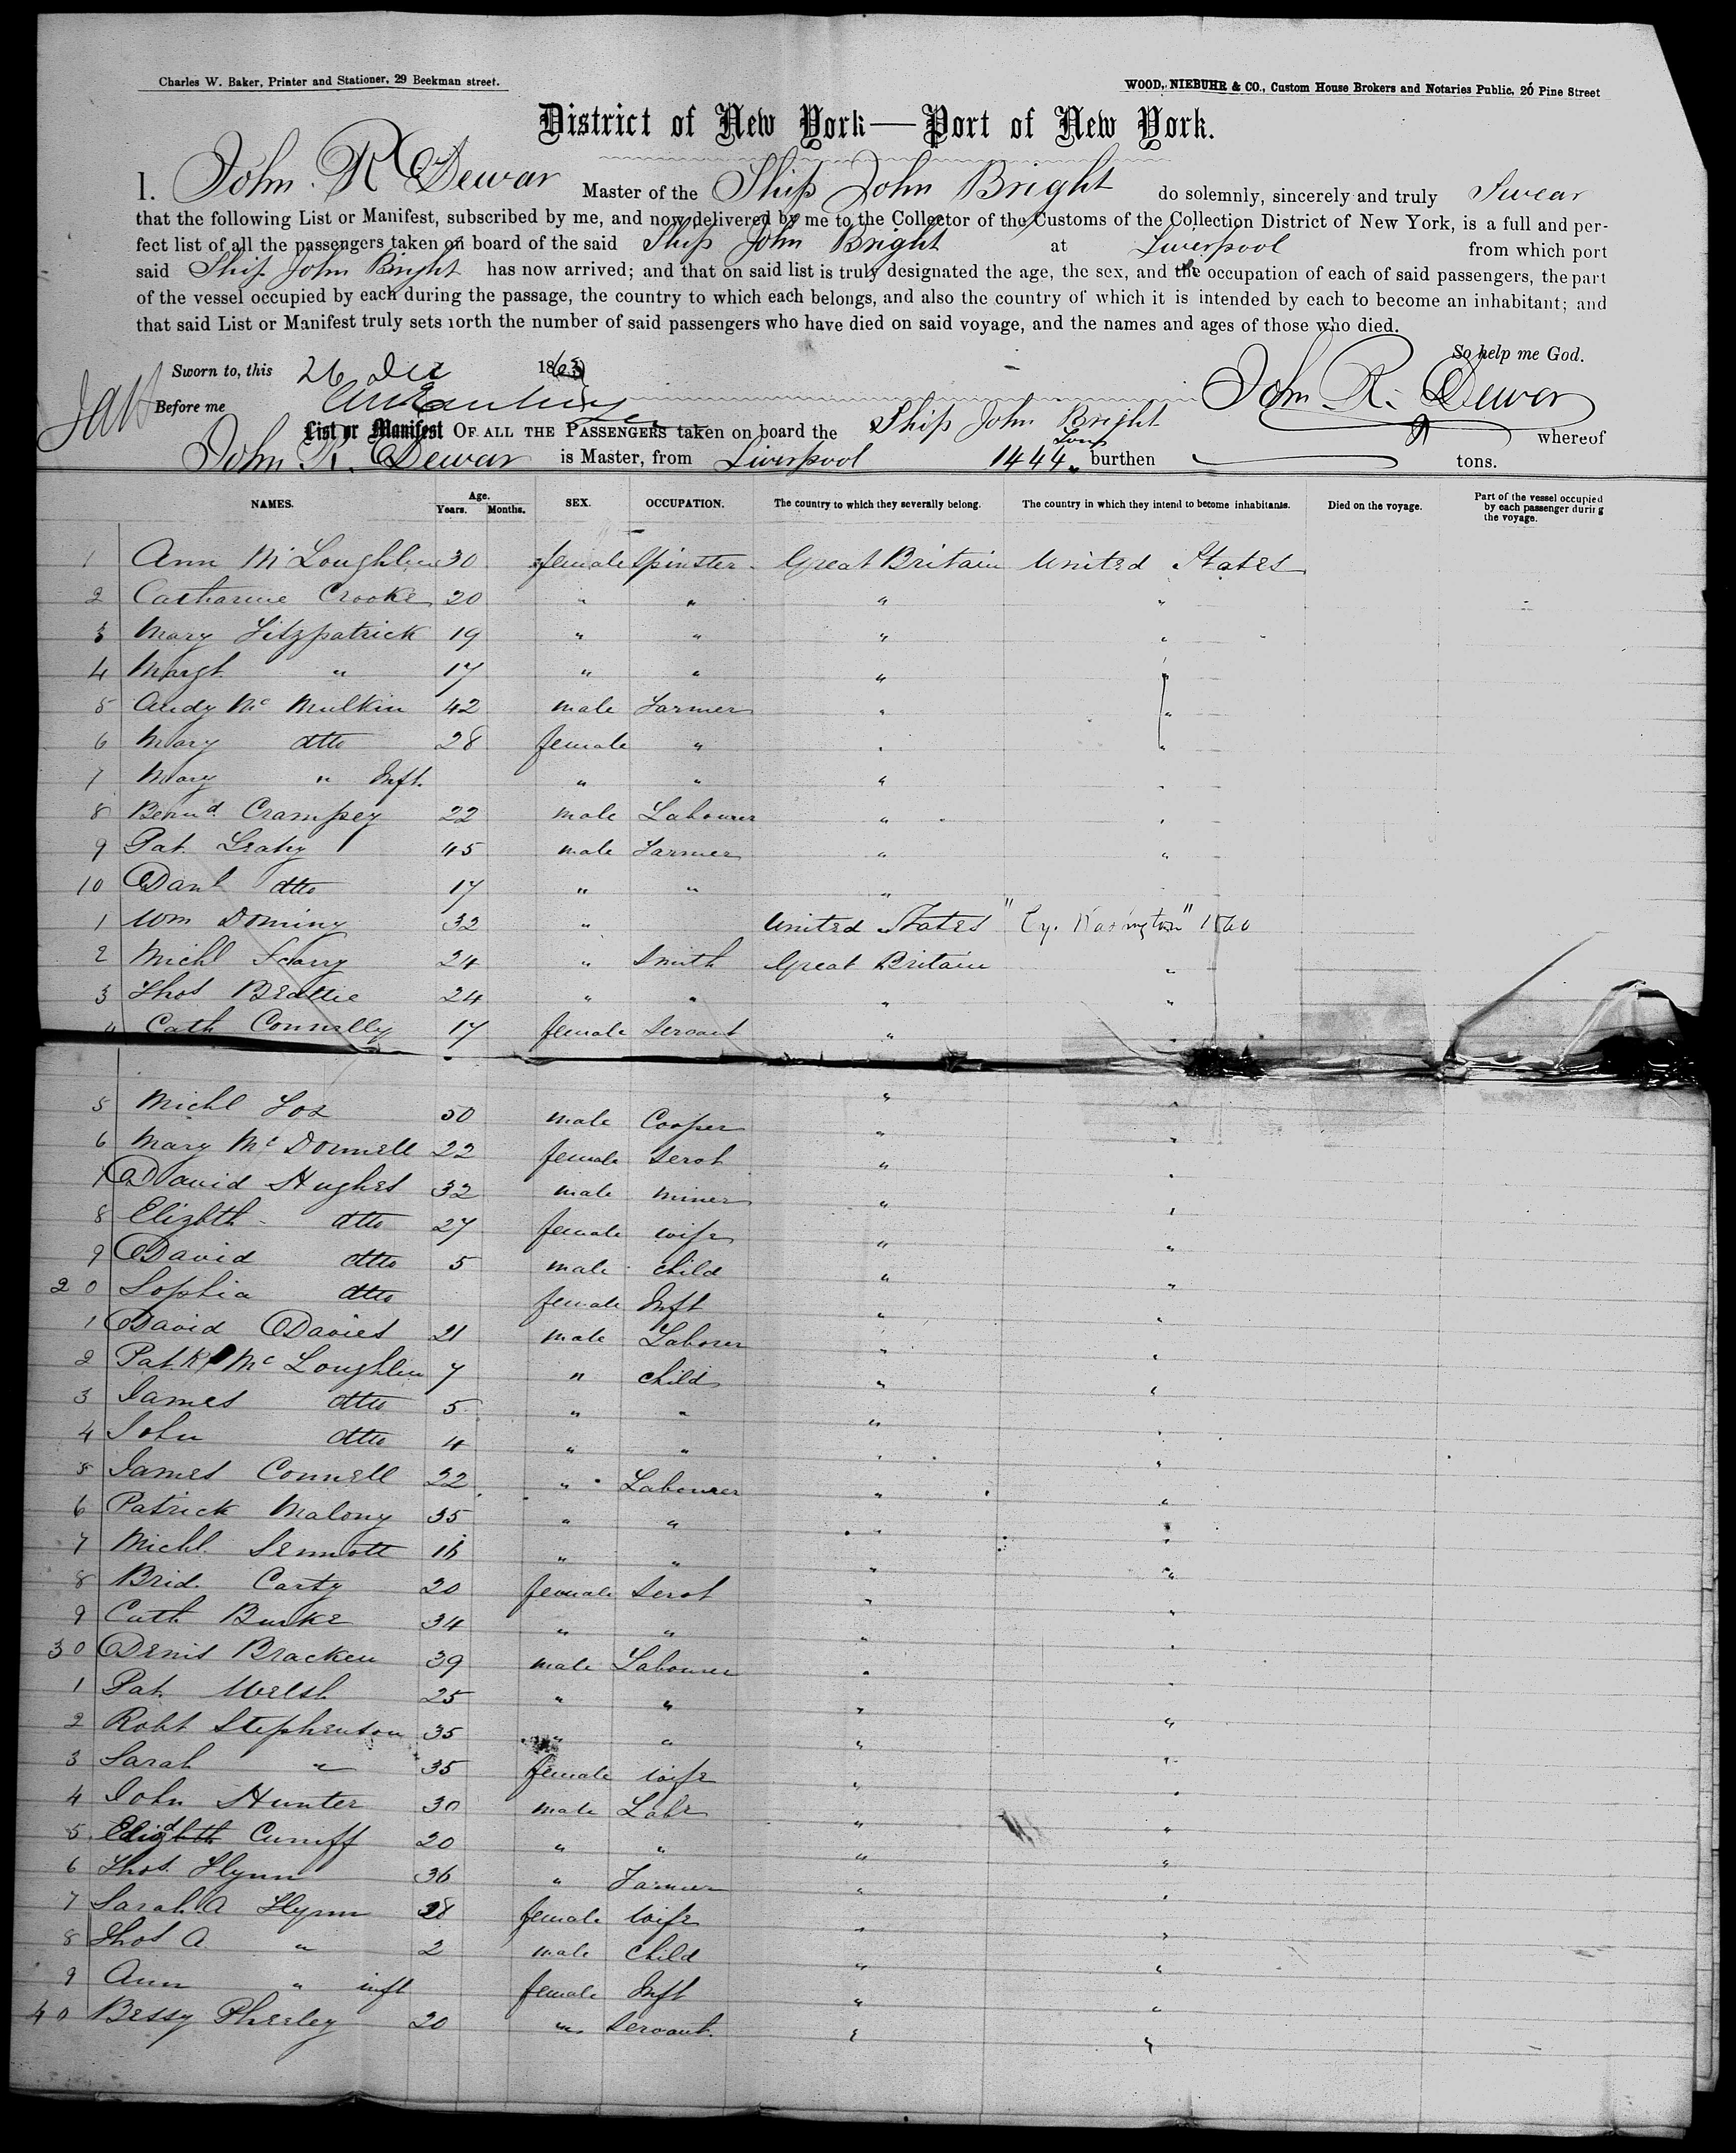 Charles W. Baker, Printer and Stationer, 29 Beekman street.
WOOD, NIEBUHR & CO., Custom House Brokers and Notaries Public, 26 Pine Street
District of New York—Port of New York.
I. John R Dewar Master of the Ship John Bright do solemnly, sincerely and truly Swear
that the following List or Manifest, subscribed by me, and now delivered by me to the Collector of the Customs of the Collection District of New York, is a full and per-
fect list of all the passengers taken on board of the said Ship John Bright at Liverpool from which port
said Ship John Bright has now arrived; and that on said list is truly designated the age, the sex, and the occupation of each of said passengers, the part
of the vessel occupied by each during the passage, the country to which each belongs, and also the country of which it is intended by each to become an inhabitant; and
that said List or Manifest truly sets forth the number of said passengers who have died on said voyage, and the names and ages of those who died.
So help me God.
Sworn to, this 26 Dec 1863
John R. Dewar
Before me
List or Manifest OF ALL THE PASSENGERS taken on board the Ship John Bright whereof
John R. Dewar is Master, from Liverpool 1444 Tons burthen tons.
NAMES. Age. Years. Months. SEX. OCCUPATION. The country to which they severally belong. The country in which they intend to become inhabitants. Died on the voyage. Part of the vessel occupied by each passenger during the voyage.
1 Ann McLoughlin 30 female Spinster Great Britain United States
2 Catharine Crooke 20 " " " "
3 Mary Fitzpatrick 19 " " " "
4 Margt " 17 " " " "
5 Andy Mc Mulkin 42 male Farmer " "
6 Mary ditto 28 female " " "
7 Mary " Inft. " " " "
8 Bernd Crampsey 22 male Labourer " "
9 Pat. 45 male Farmer " "
10 Danl ditto 17 " " "
1 Wm Dominy 32 " United States "Cy. Washington" 1860
2 Michl 24 " Smith Great Britain "
3 Thos Beattie 24 " " " "
4 Cath Connelly 17 female Servant " "
5 Michl Fox 50 male Cooper " "
6 Mary McDonnell 22 female Servt " "
7 David Hughes 32 male Miner " "
8 Elizbth ditto 27 female wife " "
9 David ditto 5 male child " "
20 Sophia ditto female Inft " "
1 David Davies 21 male Laborer " "
2 Patk Mc Loughlin 7 " child " "
3 James ditto 5 " " " "
4 John ditto 4 " " " "
5 James Connell 22 " Labourer " "
6 Patrick Malony 35 " " " "
7 Michl Sennott 16 " " " "
8 Brid. Carty 20 female Servt " "
9 Cath Burke 34 " " " "
30 Denis Bracken 39 male Labourer " "
1 Pat. Welsh 25 " " " "
2 Robt Stephenson 35 " " " "
3 Sarah " 35 female wife " "
4 John Hunter 30 male Labr " "
5 Cuniff 20 " " " "
6 Thos. Flynn 36 " Farmer " "
7 Sarah A Flynn 28 female wife " "
8 Thos A. " 2 male child " "
9 Ann " inft female Inft " "
40 Bessy Pherley 20 " Servant. " "